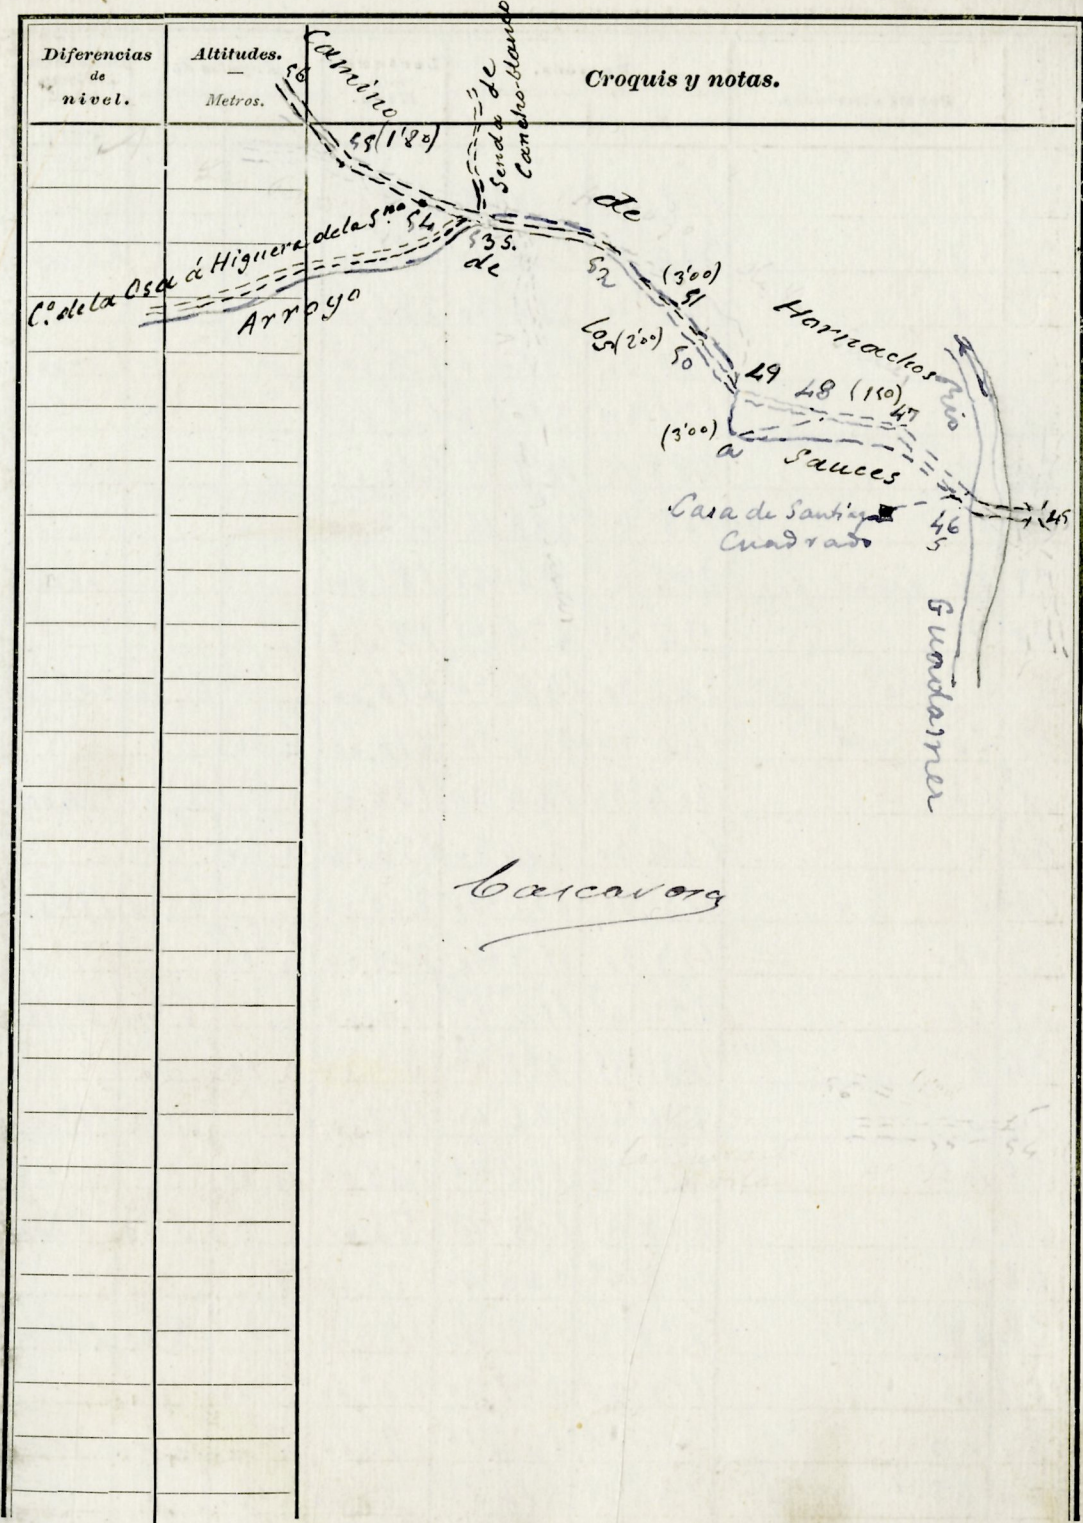 Diferencias
de
nivel.
Altitudes.
Metros.
Croquis y notas.
Camino
56
55 (1'80)
Senda de
Cancho-blanco
54
C.º de la Osa á Higuera de la S.na
53 S.
de
Arroyo
de
52
(3'00)
51
los
(2'00)
50
Hornachos
49
48 (150)
47
(3'00)
a
Sauces
Rio
Casa de Santiago
Cuadrado
46
S
45
Guadamez